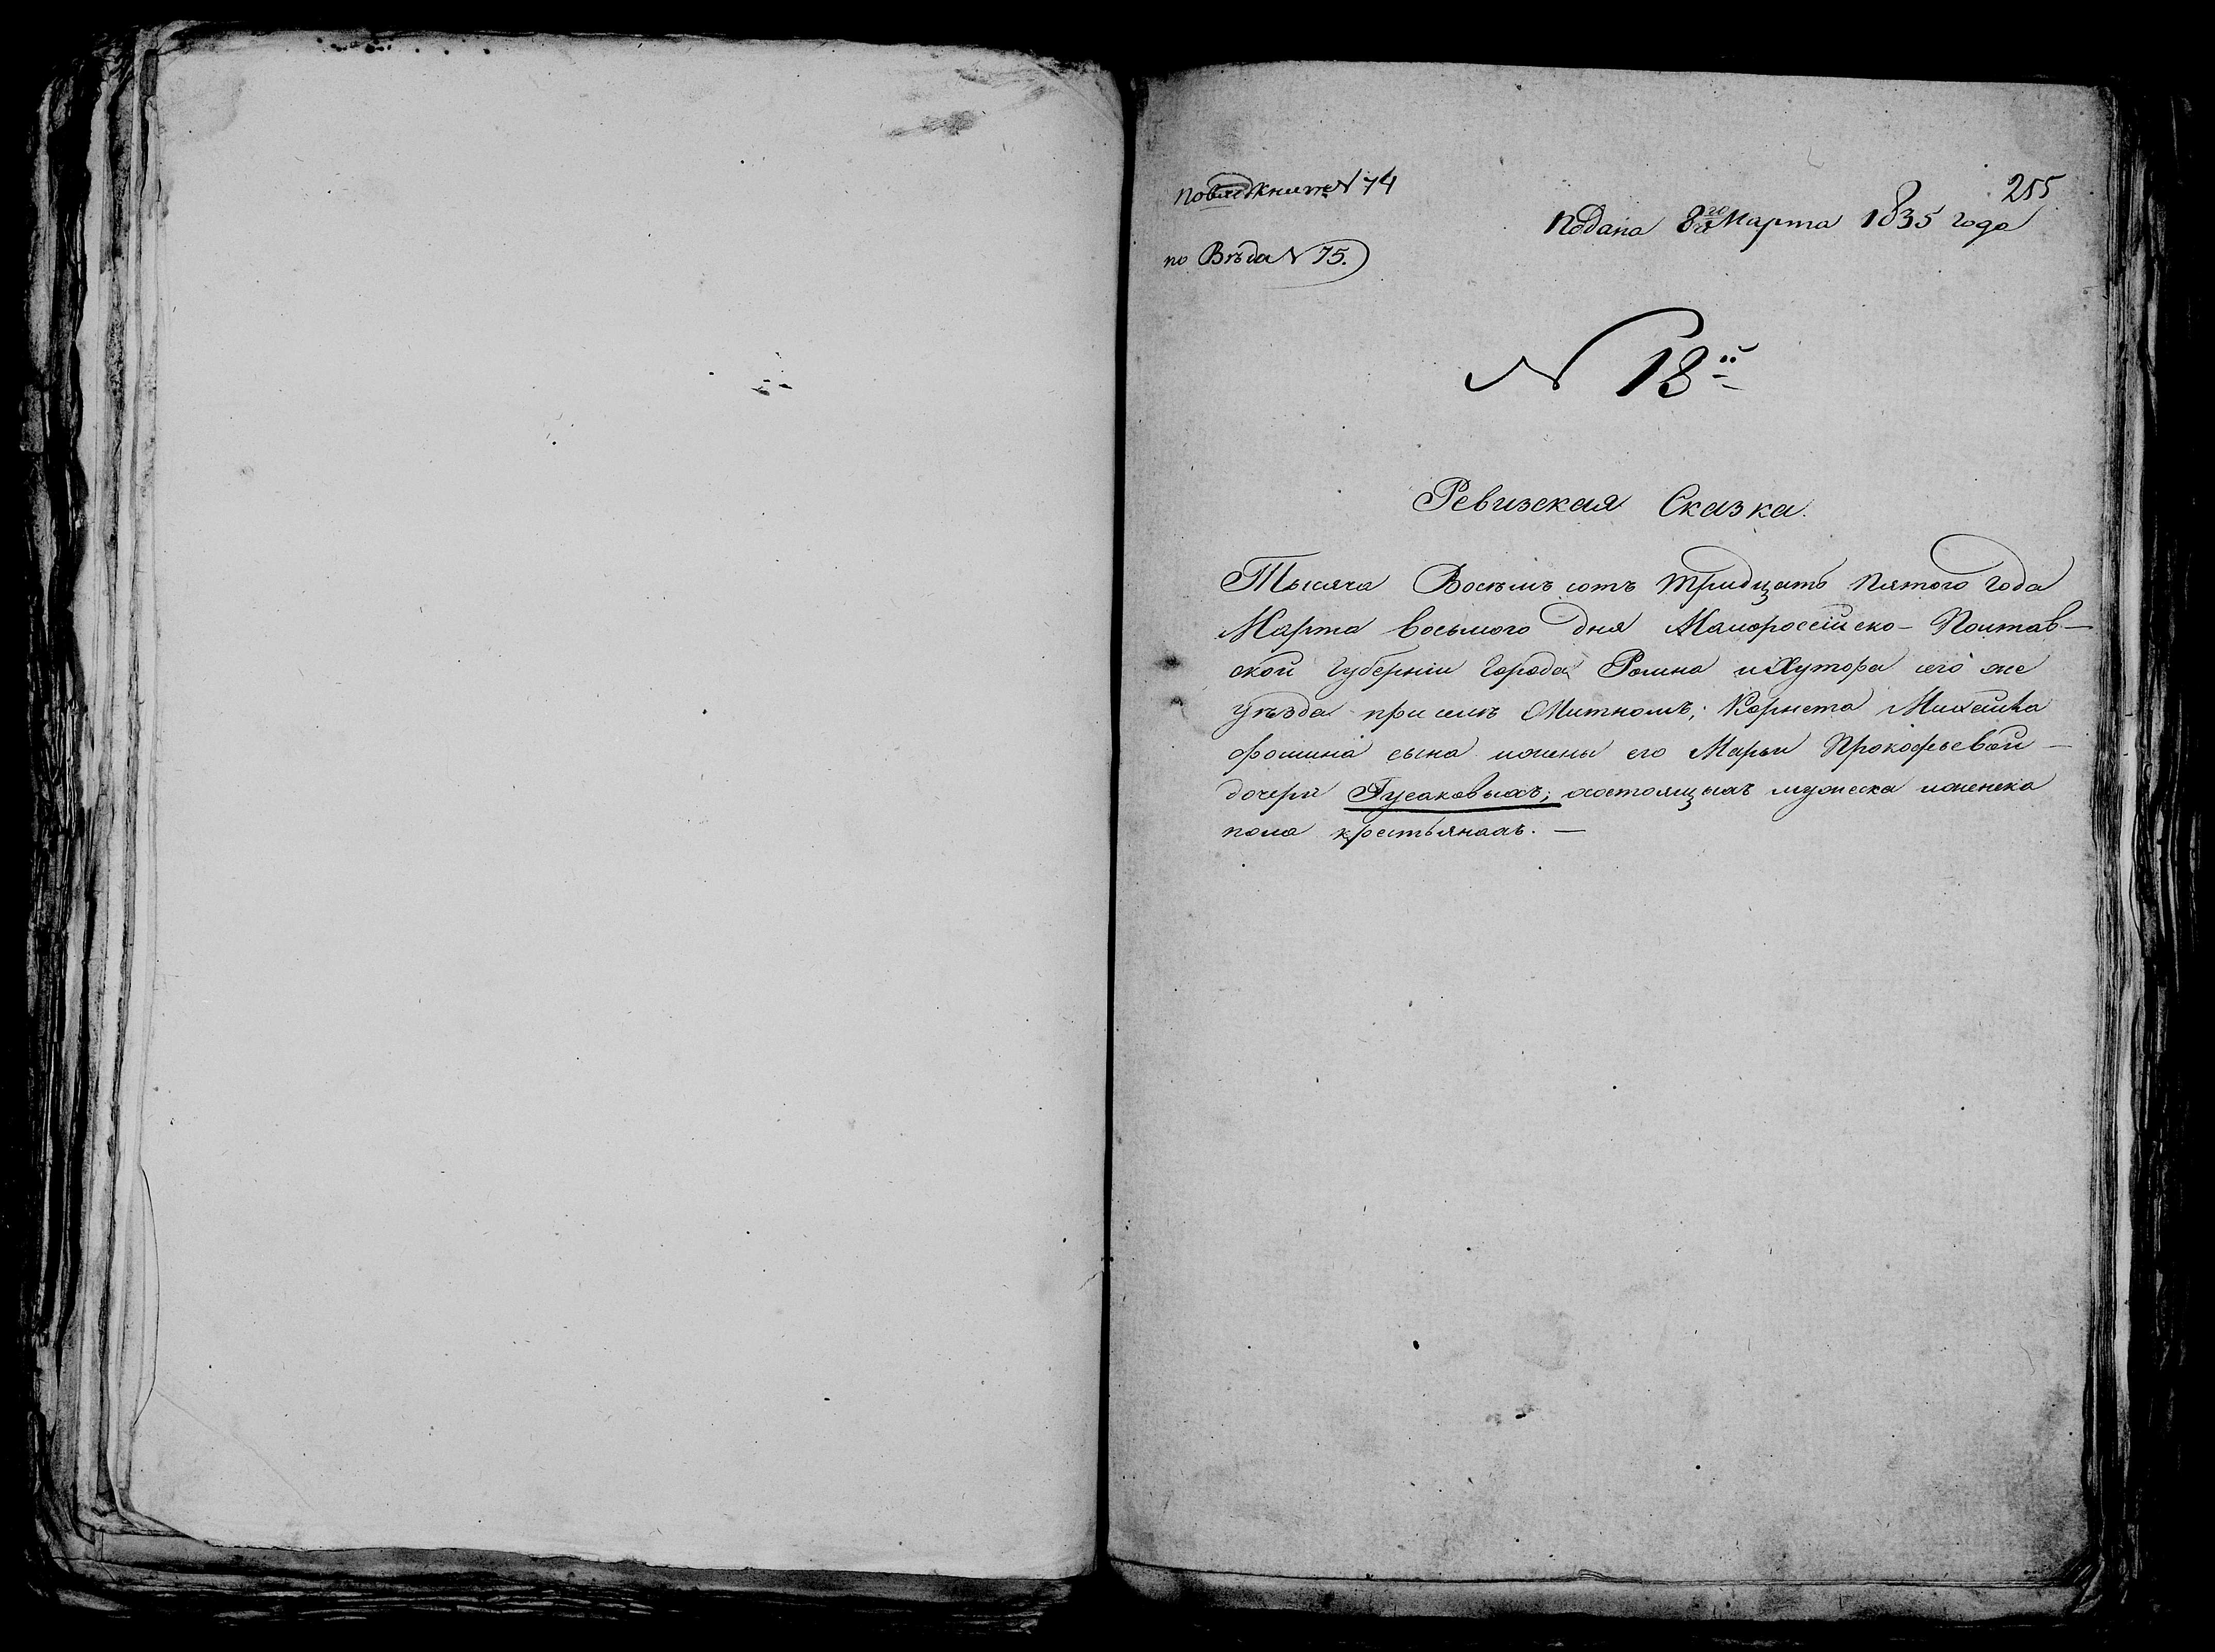 255
по книге N 74
Подана 8го Марта 1835 года
по Вѣдо N 75.
N 18й
Ревизская Сказка.
Тысяча Восемь сотъ тридцать Пятого года
Марта восьмого дня Малоросcійско- Полтав-
ской Губерніи Города Ромна и Хутора его же
уѣзда при селѣ Корнета Михайла
Фомина сына и жены его Марьи Прокофьевой
дочери Гусаковыхъ; состоящыхъ мужеска и женска
пола крестьянахъ. —